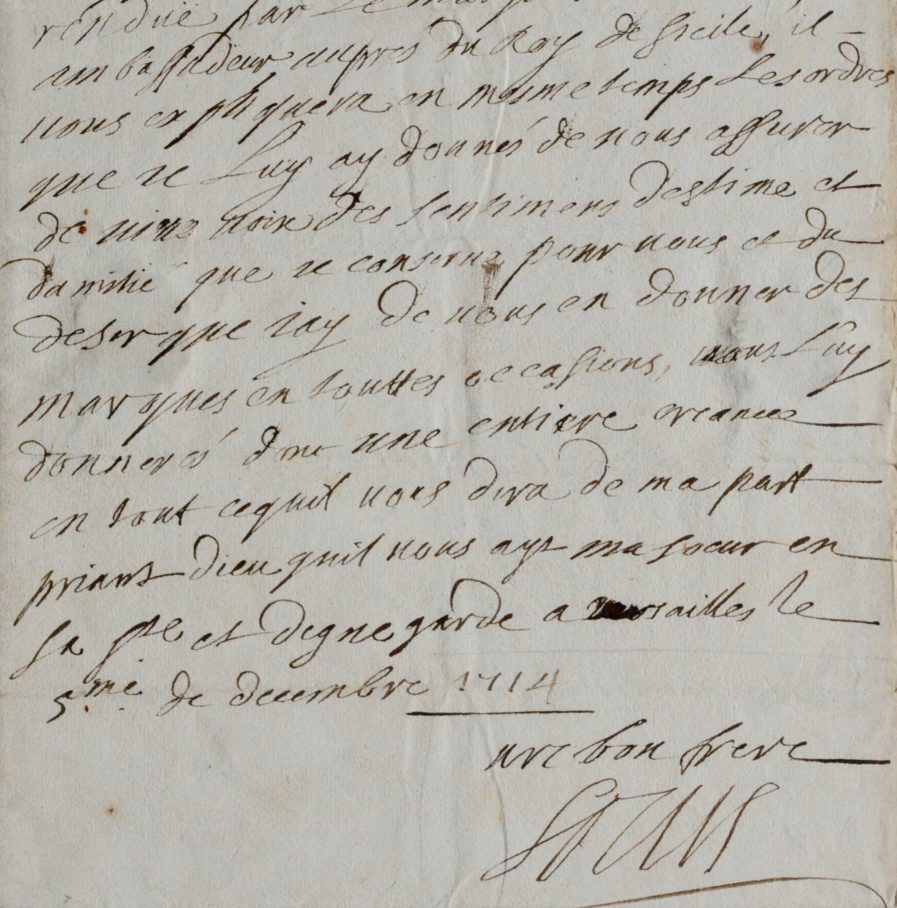 rendue par Le marq
ambassadeur aupres du Roy de sicile, il
vous expliquera en mesme temps Les ordres
que ie Luy ay donnés de vous assurer
de vive voix des sentimens destime et
damitié que ie conserve pour vous et du
desir que iay de vous en donner des
marques en touttes occasions, vous Luy
donnerés donc une entiere creance
en tout cequil vous dira de ma part
priant dieu quil vous ayt ma soeur en
sa ste et digne garde a versailles le
5.me de decembre 1714
vre bon frere
Louis